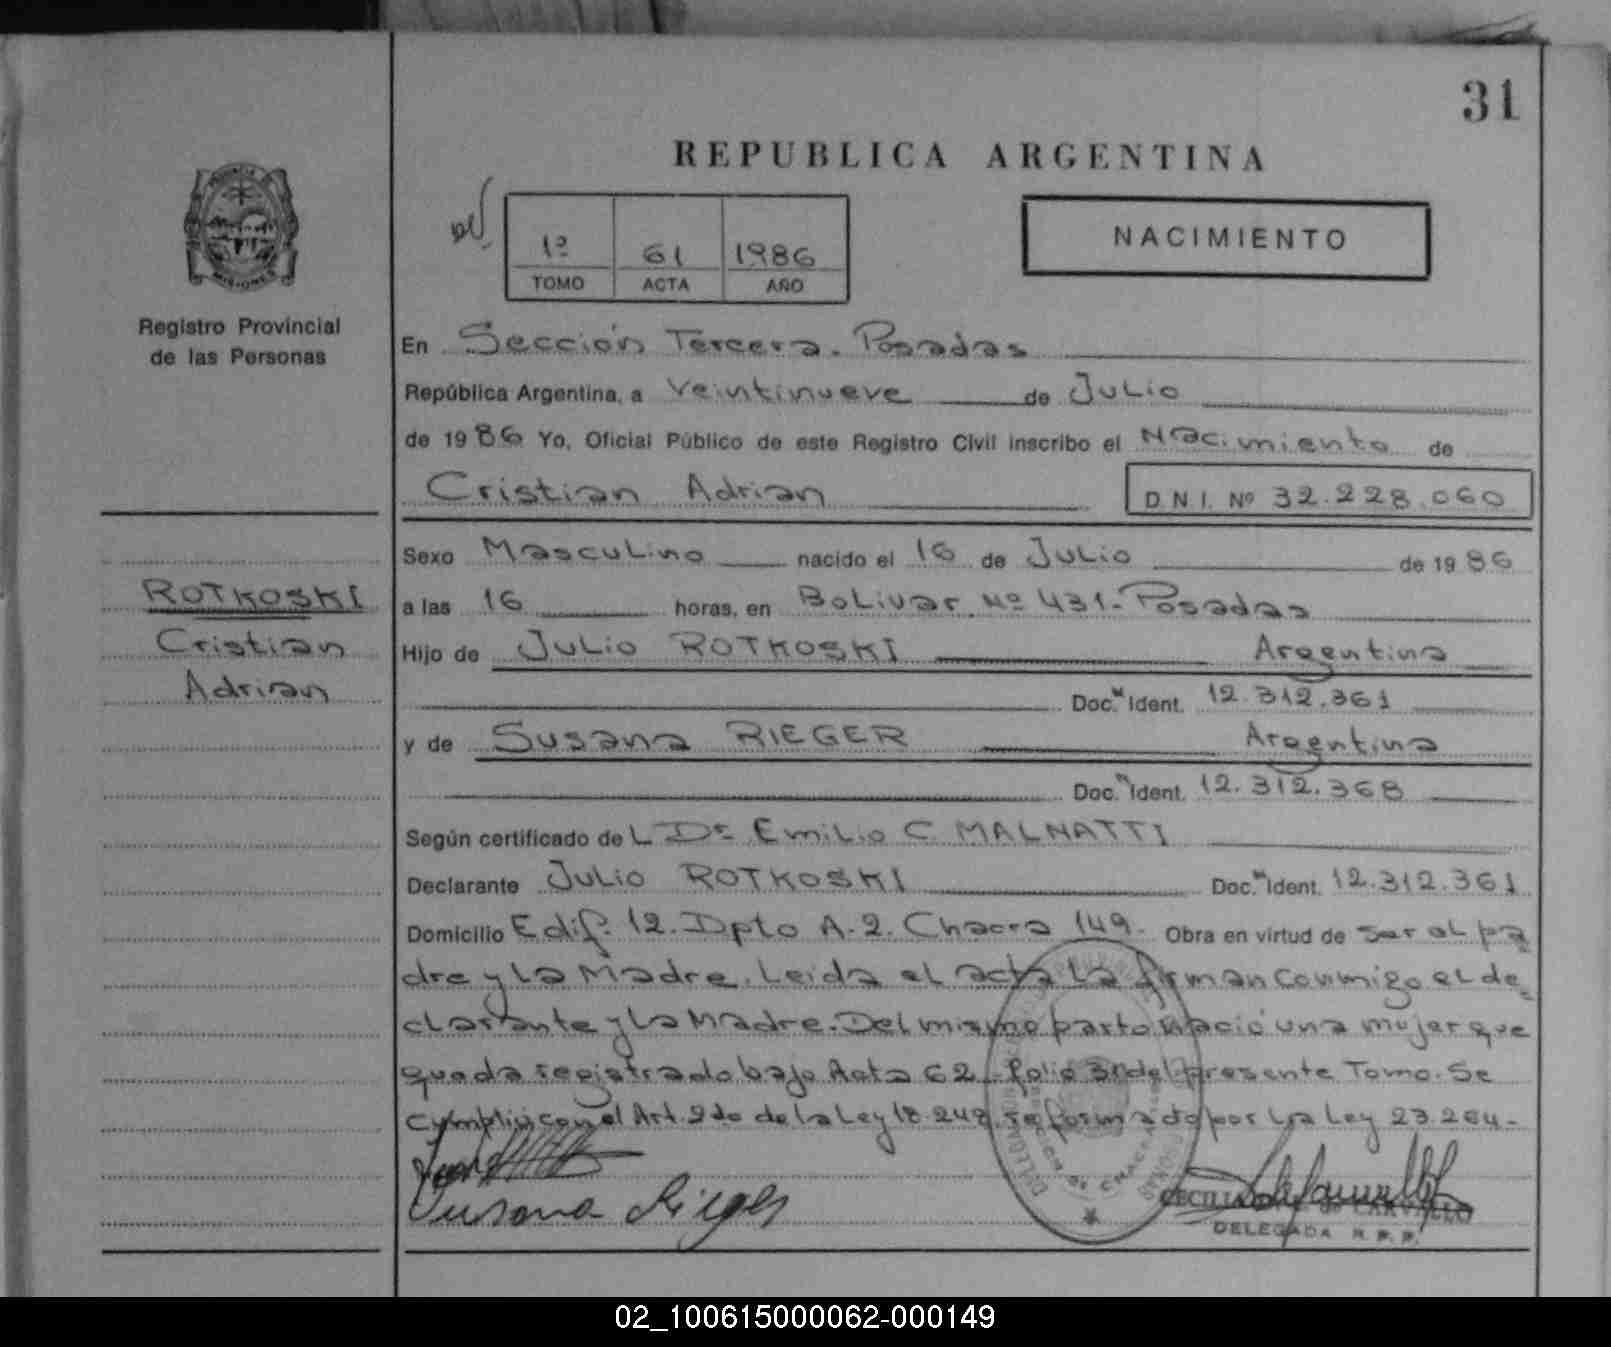 31
REPUBLICA ARGENTINA
1º 61 1986
TOMO ACTA AÑO
NACIMIENTO
MISIONES
Registro Provincial
de las Personas
En Sección Tercera. Posadas
República Argentina, a Veintinueve de Julio
de 1986 Yo, Oficial Público de este Registro Civil inscribo el Nacimiento de
Cristian Adrian D.N.I. Nº 32.228.060
Sexo Masculino nacido el 16 de Julio de 1986
ROTKOSKI
Cristian
Adrian
a las 16 horas, en Bolivar Nº 431-Posadas
Hijo de Julio ROTKOSKI Argentina
Doc. Ident. 12.312.361
y de Susana RIEGER Argentina
Doc. Ident. 12.312.368
Según certificado de L Dr. Emilio C. MALNATTI
Declarante Julio ROTKOSKI Doc. Ident. 12.312.361
Domicilio Edif. 12. Dpto A-2. Chacra 149- Obra en virtud de ser el pa
dre y la Madre. Leida el acta la firman conmigo el de-
clarante y la Madre. Del mismo parto nació una mujer que
queda registrado bajo Acta 62 folio 31 del presente Tomo. Se
cumplió con el Art. 2do de la Ley 18.248 reformado por la Ley 23.264-
Susana Rieger
CECILIA de CARVALLO
DELEGADA R. P. P.
02_100615000062-000149